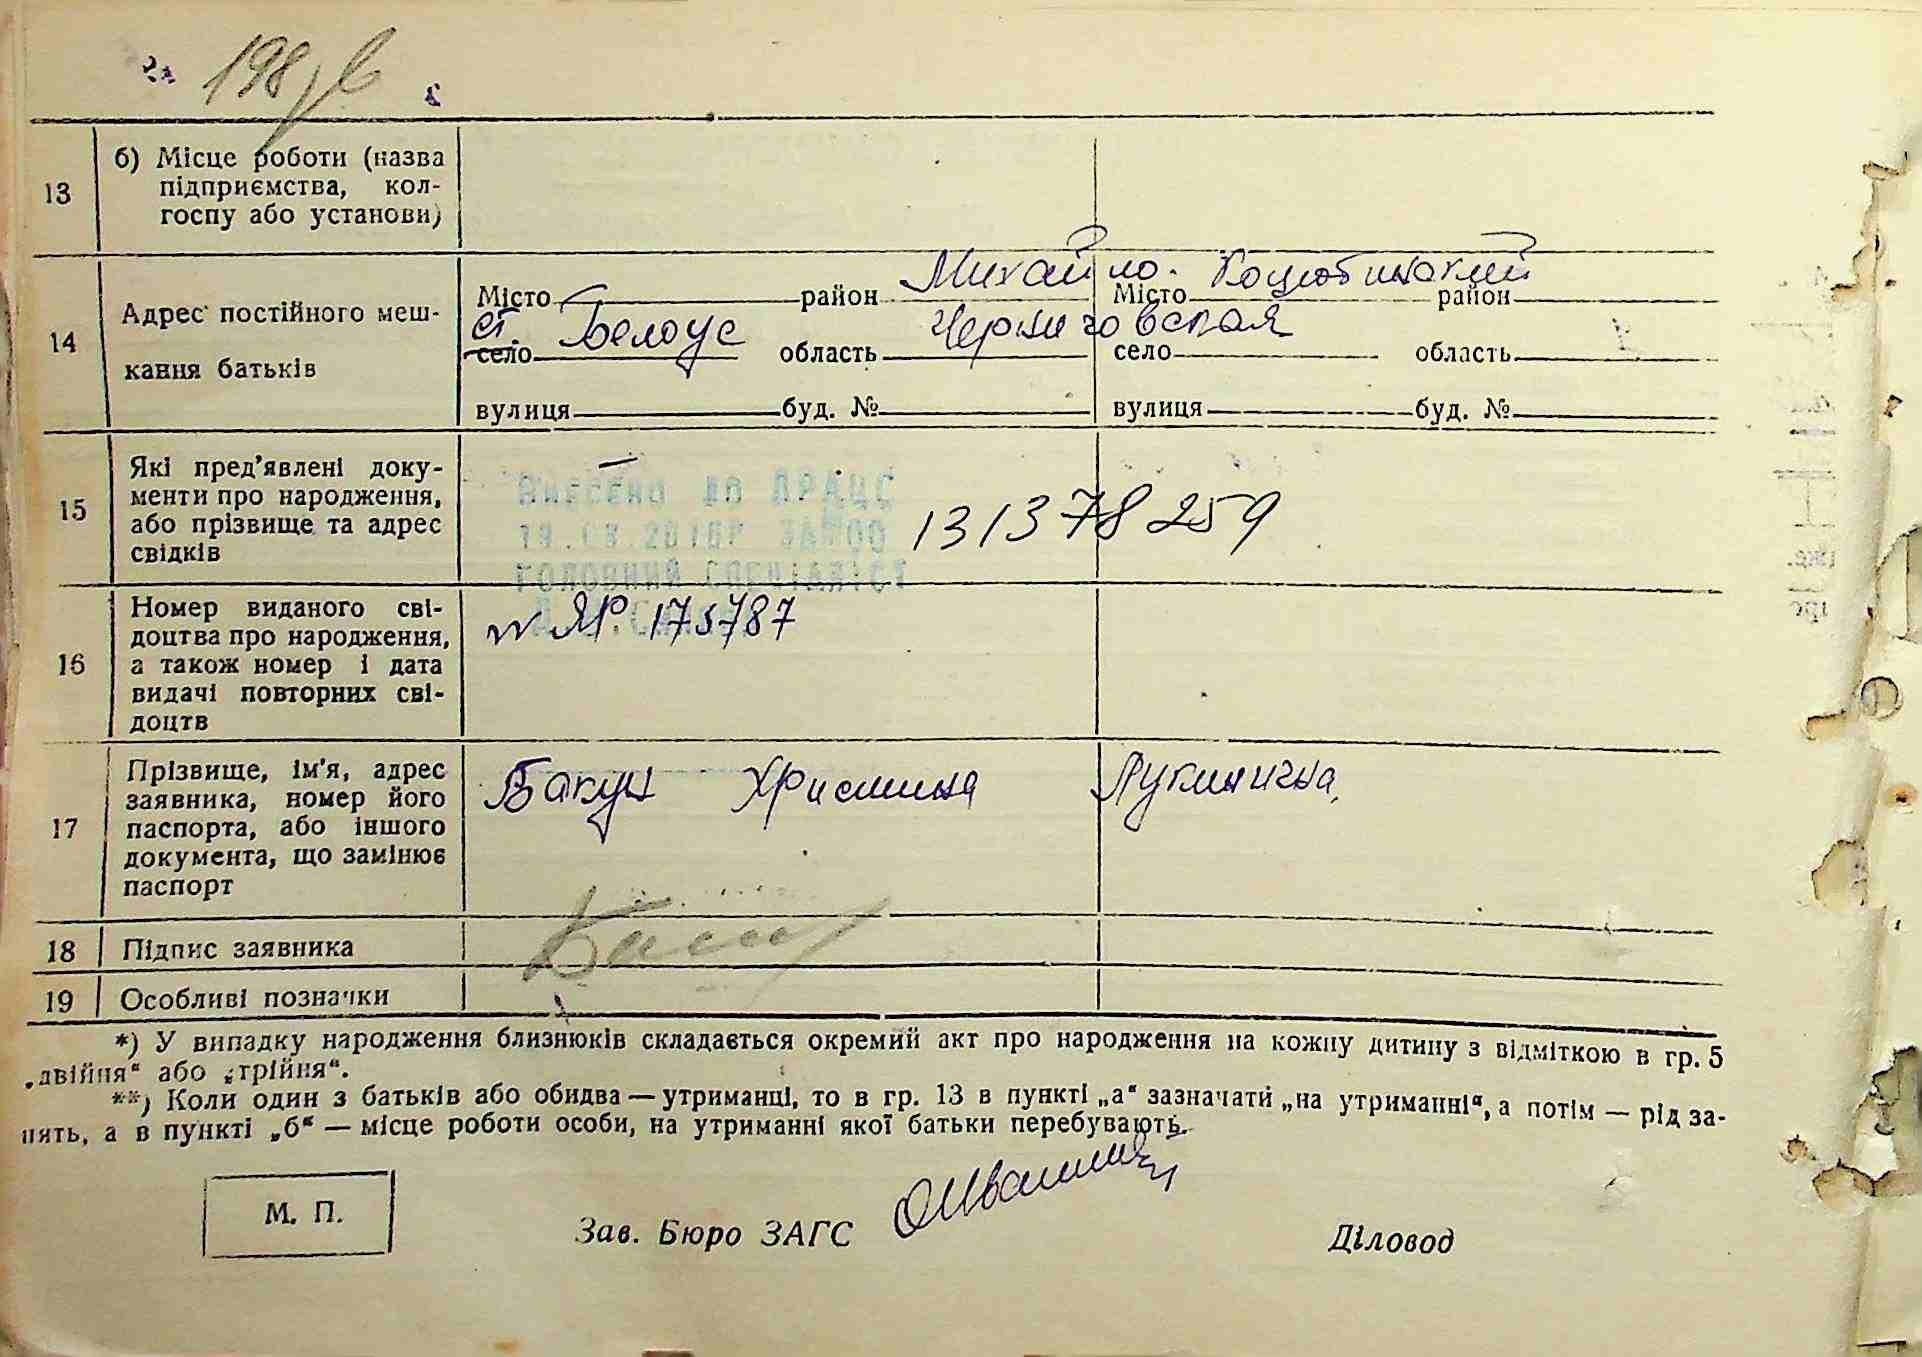 198 зв
13
б) Місце роботи (назва
підприємства, кол-
госпу або установи)
14
Адрес постійного меш-
кання батьків
Михайло. Коцюбинский
Місто район Місто район
ст. Белоус Черниговская
село область село область
вулиця буд. № вулиця буд. №
15
Які пред'явлені доку-
менти про народження,
або прізвище та адрес
свідків
Внесено до ДРАЦС
131378259
головний спеціаліст
16
Номер виданого сві-
доцтва про народження,
а також номер і дата
видачі повторних сві-
доцтв
ЯР 175787
17
Прізвище, ім'я, адрес
заявника, номер його
паспорта, або іншого
документа, що замінює
паспорт
Бакун Христина Лукинична,
18 Підпис заявника
19 Особливі позначки
*) У випадку народження близнюків складається окремий акт про народження на кожну дитину з відміткою в гр. 5
„двійня“ або „трійня“.
**) Коли один з батьків або обидва — утриманці, то в гр. 13 в пункті „а“ зазначати „на утриманні“, а потім — рід за-
нять, а в пункті „б“ — місце роботи особи, на утриманні якої батьки перебувають.
М. П.
Зав. Бюро ЗАГС
Діловод